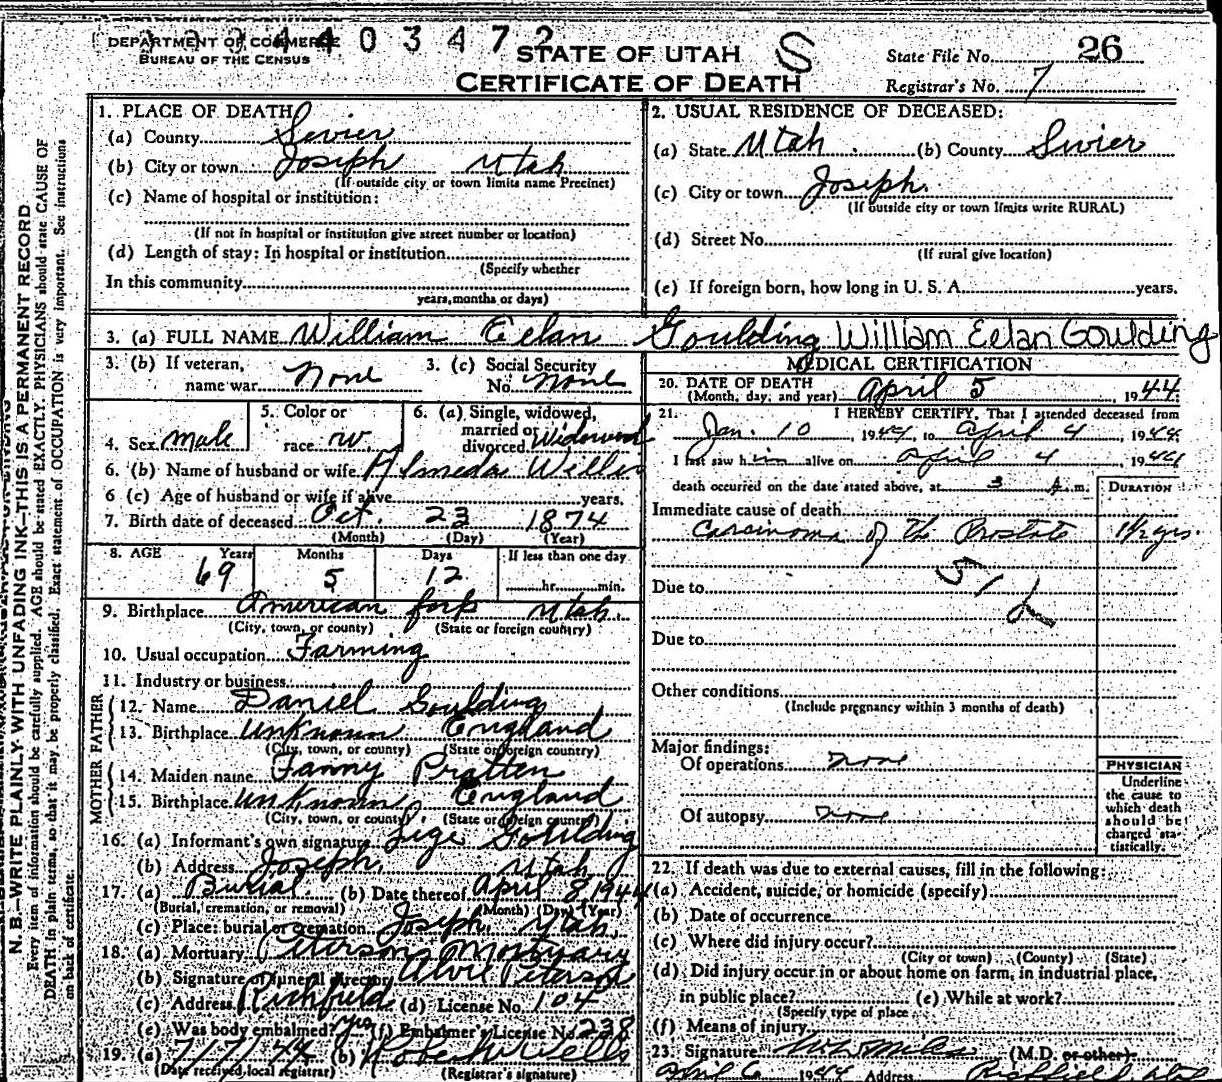 DEPARTMENT OF COMMERCE
BUREAU OF THE CENSUS
4403472
STATE OF UTAH
CERTIFICATE OF DEATH
S
State File No. 26
Registrar's No. 7
N. B.—WRITE PLAINLY WITH UNFADING INK—THIS IS A PERMANENT RECORD
Every item of information should be carefully supplied. AGE should be stated EXACTLY. PHYSICIANS should state CAUSE OF
DEATH in plain terms, so that it may be properly classified. Exact statement of OCCUPATION is very important. See instructions
on back of certificate.
1. PLACE OF DEATH
(a) County Sevier
(b) City or town Joseph Utah
(If outside city or town limits name Precinct)
(c) Name of hospital or institution:
(If not in hospital or institution give street number or location)
(d) Length of stay: In hospital or institution
(Specify whether
In this community
years, months or days)
2. USUAL RESIDENCE OF DECEASED:
(a) State Utah (b) County Sevier
(c) City or town Joseph
(If outside city or town limits write RURAL)
(d) Street No.
(If rural give location)
(e) If foreign born, how long in U. S. A. years.
3. (a) FULL NAME William Eelan Goulding William Eelan Goulding
3. (b) If veteran, name war None
3. (c) Social Security No. none
4. Sex male
5. Color or race w
6. (a) Single, widowed, married or divorced Widowed
6. (b) Name of husband or wife Almeda Willis
6 (c) Age of husband or wife if alive years.
7. Birth date of deceased Oct. 23 1874
(Month) (Day) (Year)
8. AGE Years Months Days If less than one day
69 5 12 hr. min.
9. Birthplace American fork Utah
(City, town, or county) (State or foreign country)
10. Usual occupation Farming
11. Industry or business
FATHER
12. Name Daniel Goulding
13. Birthplace unknown England
(City, town, or county) (State or foreign country)
MOTHER
14. Maiden name Fanny Pratten
15. Birthplace unknown England
(City, town, or county) (State or foreign country)
16. (a) Informant's own signature Lige Goulding
(b) Address Joseph, Utah
17. (a) Burial (b) Date thereof April 8 1944
(Burial, cremation, or removal) (Month) (Day) (Year)
(c) Place: burial or cremation Joseph, Utah,
18. (a) Mortuary Peterson Mortuary
(b) Signature of funeral director Alvie Peterson
(c) Address Richfield (d) License No. 104
(e) Was body embalmed? yes (f) Embalmer's License No. 238
19. (a) 7/17/44 (b) Wells
(Date received local registrar) (Registrar's signature)
MEDICAL CERTIFICATION
20. DATE OF DEATH April 5, 1944
(Month, day, and year)
21. I HEREBY CERTIFY, That I attended deceased from
Jan. 10, 1944, to April 4, 1944
I last saw him alive on April 4, 1944
death occurred on the date stated above, at 3 m.
DURATION
Immediate cause of death
Carsinoma of the Prostate 1½ yrs.
51
Due to
Due to
Other conditions
(Include pregnancy within 3 months of death)
Major findings:
Of operations none
Of autopsy none
PHYSICIAN
Underline
the cause to
which death
should be
charged sta-
tistically.
22. If death was due to external causes, fill in the following:
(a) Accident, suicide, or homicide (specify)
(b) Date of occurrence
(c) Where did injury occur?
(City or town) (County) (State)
(d) Did injury occur in or about home on farm, in industrial place,
in public place? (e) While at work?
(Specify type of place)
(f) Means of injury
23. Signature Miles (M.D. or other)
6 1944 Address Richfield Utah